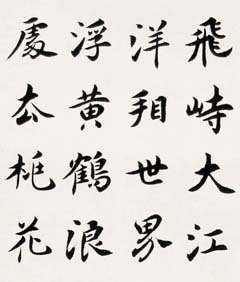 飛峙大江
洋看世界
浮黄鶴浪
處去桃花